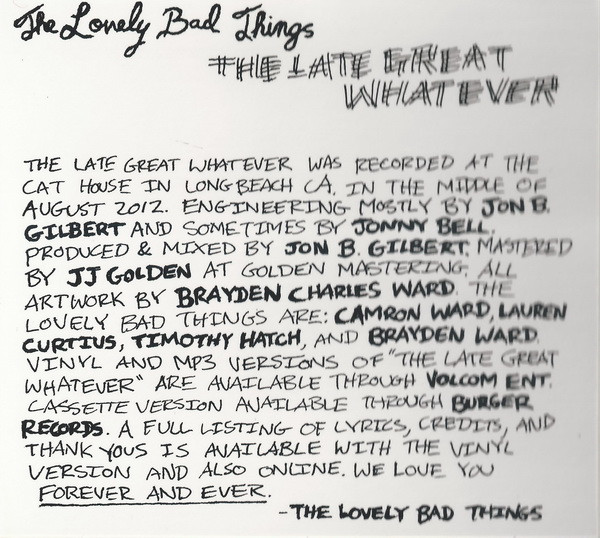 The Lovely Bad Things
THE LATE GREAT
WHATEVER
THE LATE GREAT WHATEVER WAS RECORDED AT THE
CAT HOUSE IN LONG BEACH CA, IN THE MIDDLE OF
AUGUST 2012. ENGINEERING MOSTLY BY JON B.
GILBERT AND SOMETIMES BY JONNY BELL.
PRODUCED & MIXED BY JON B. GILBERT. MASTERED
BY JJ GOLDEN AT GOLDEN MASTERING. ALL
ARTWORK BY BRAYDEN CHARLES WARD. THE
LOVELY BAD THINGS ARE: CAMRON WARD, LAUREN
CURTIUS, TIMOTHY HATCH, AND BRAYDEN WARD.
VINYL AND MP3 VERSIONS OF "THE LATE GREAT
WHATEVER" ARE AVAILABLE THROUGH VOLCOM ENT.
CASSETTE VERSION AVAILABLE THROUGH BURGER
RECORDS. A FULL LISTING OF LYRICS, CREDITS, AND
THANK YOUS IS AVAILABLE WITH THE VINYL
VERSION AND ALSO ONLINE. WE LOVE YOU
FOREVER AND EVER.
-THE LOVELY BAD THINGS